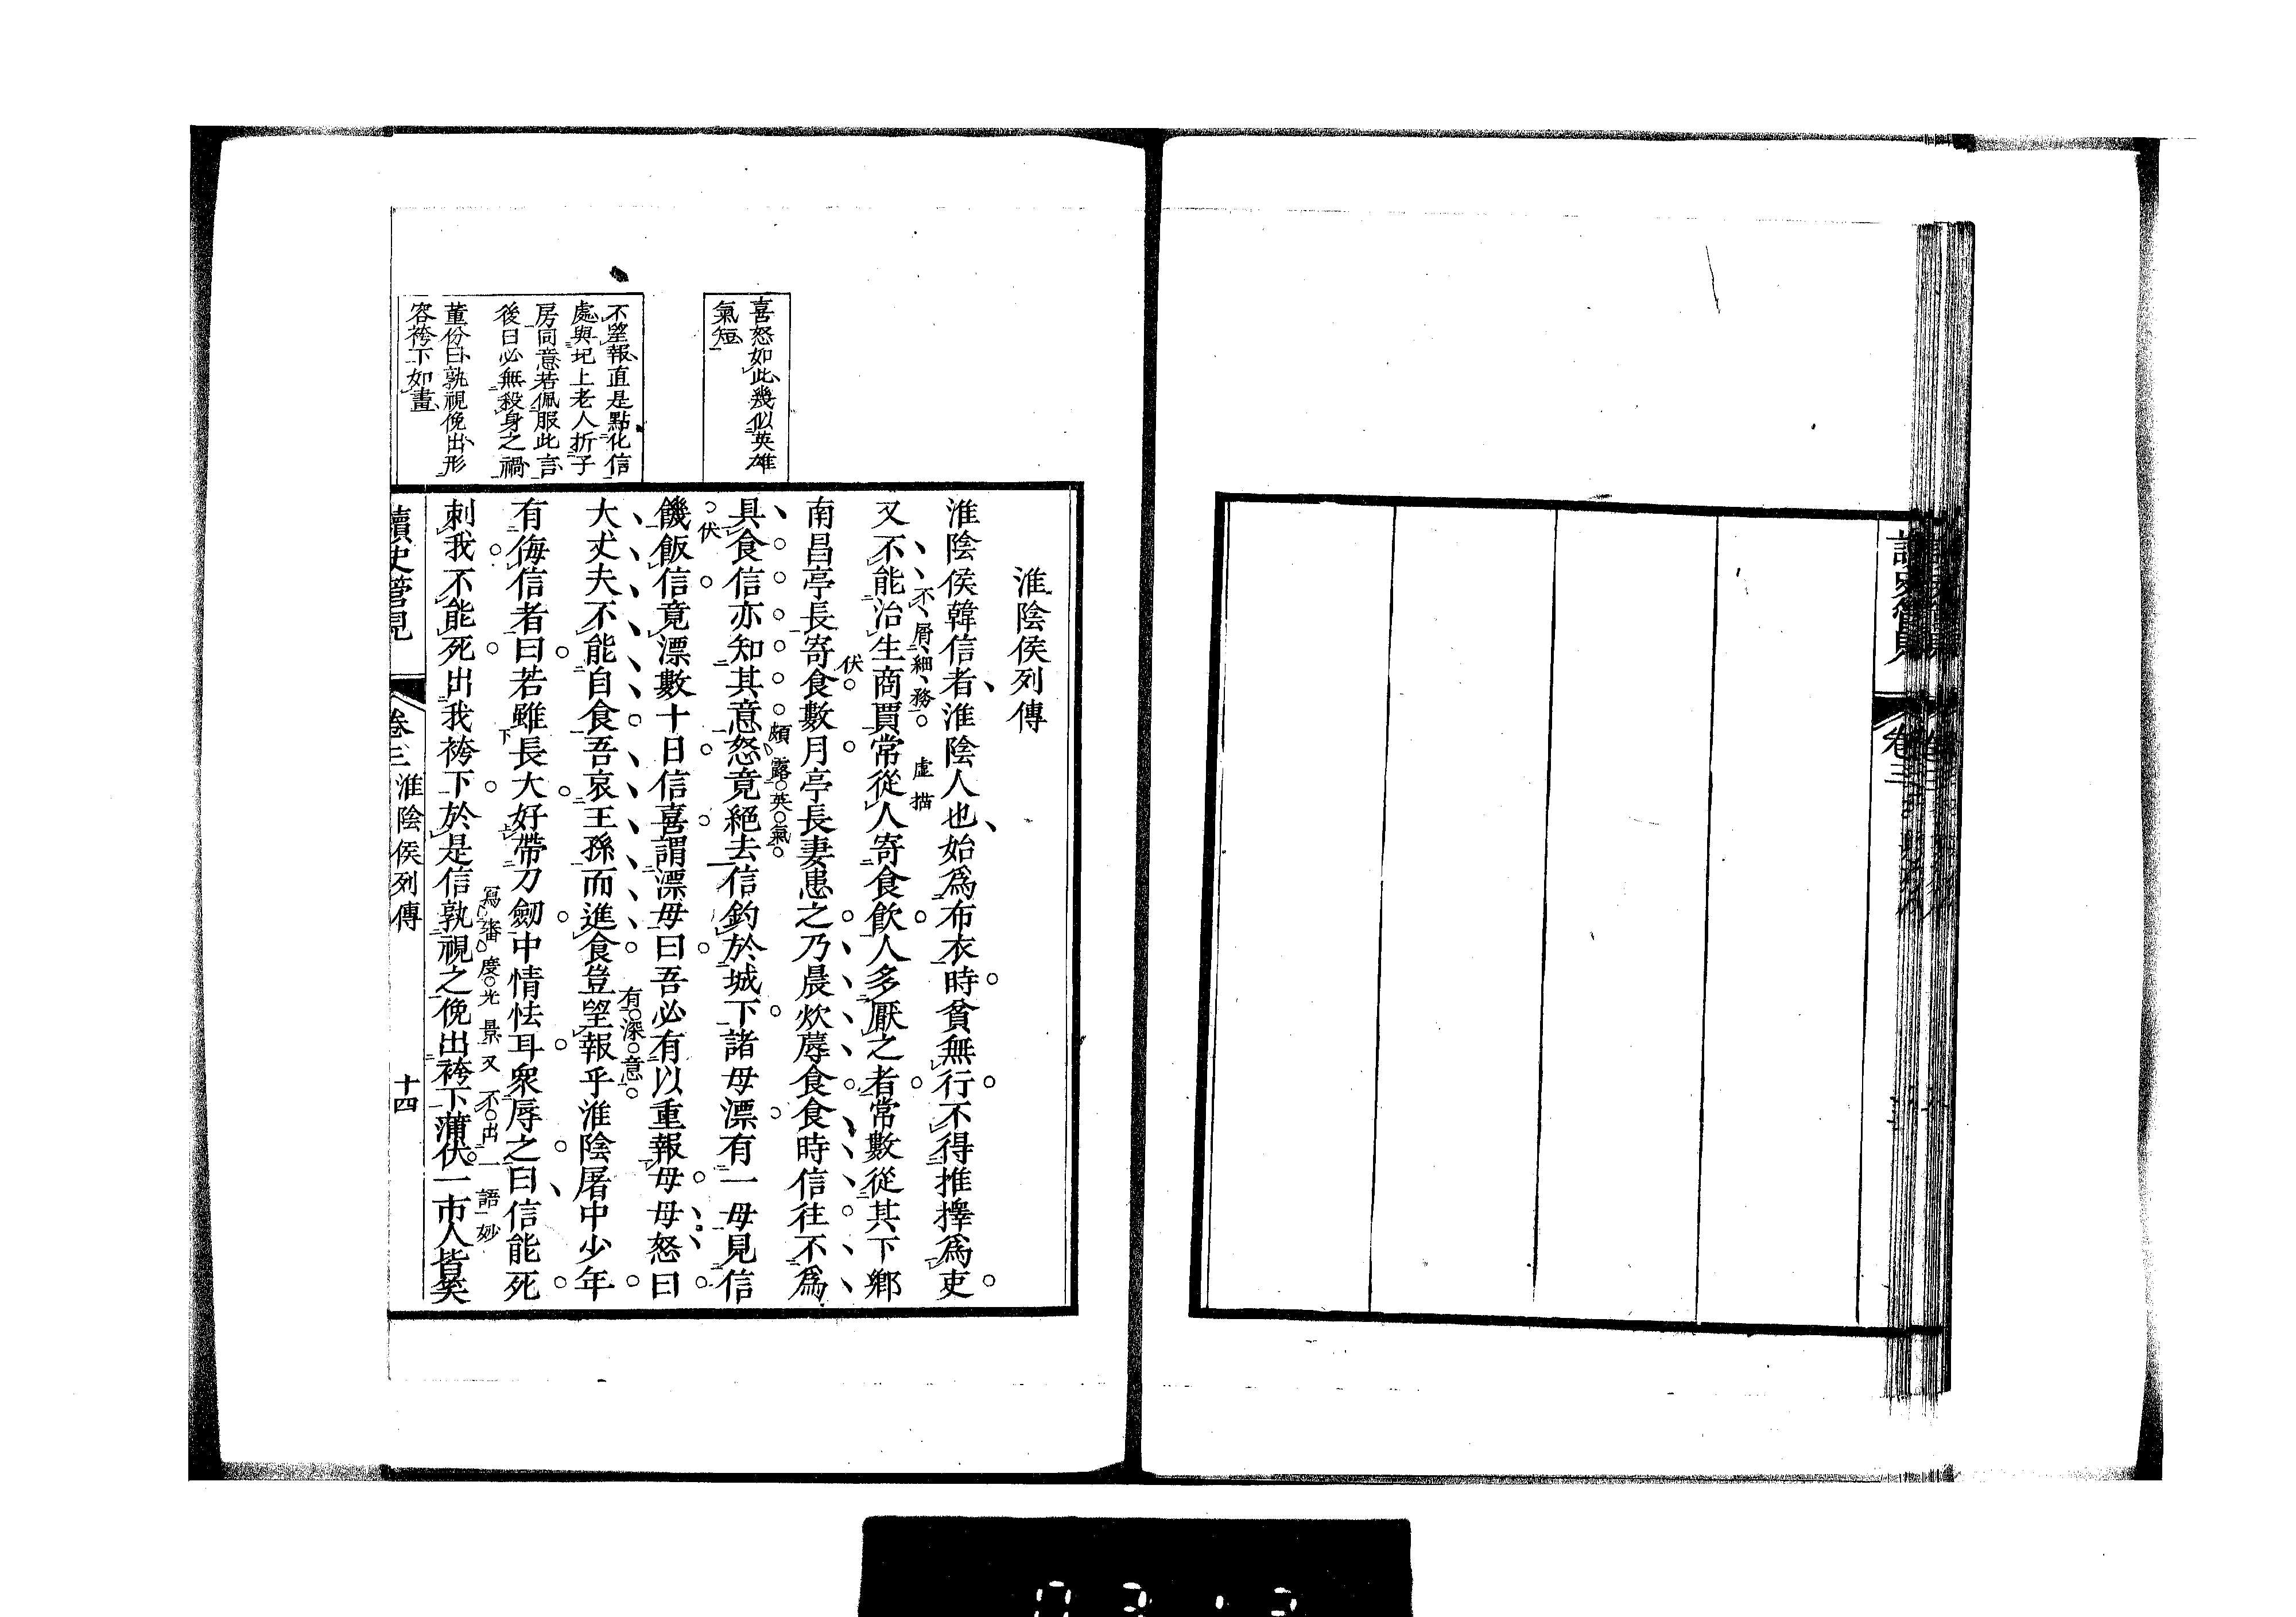 讀史管見
卷三
淮陰侯列傳
淮陰侯韓信者淮陰人也始爲布衣時貧無行不得推擇爲吏
不屑細務 虛描
又不能治生商賈常從人寄食飮人多厭之者常數從其下鄕
伏
南昌亭長寄食數月亭長妻患之乃晨炊蓐食食時信往不爲
頗露英氣
具食信亦知其意怒竟絕去信釣於城下諸母漂有一母見信
伏
饑飯信竟漂數十日信喜謂漂母曰吾必有以重報母母怒曰
有深意
大丈夫不能自食吾哀王孫而進食豈望報乎淮陰屠中少年
有侮信者曰若雖長大好帶刀劒中情怯耳衆辱之曰信能死
寫審度光景又不出一語妙
刺我不能死出我袴下於是信孰視之俛出袴下蒲伏一市人皆笑
喜怒如此幾似英雄
氣短
不望報直是點化信
處與圯上老人折子
房同意若佩服此言
後日必無殺身之禍
董份曰孰視俛出形
容袴下如畫
讀史管見
卷三 淮陰侯列傳 十四